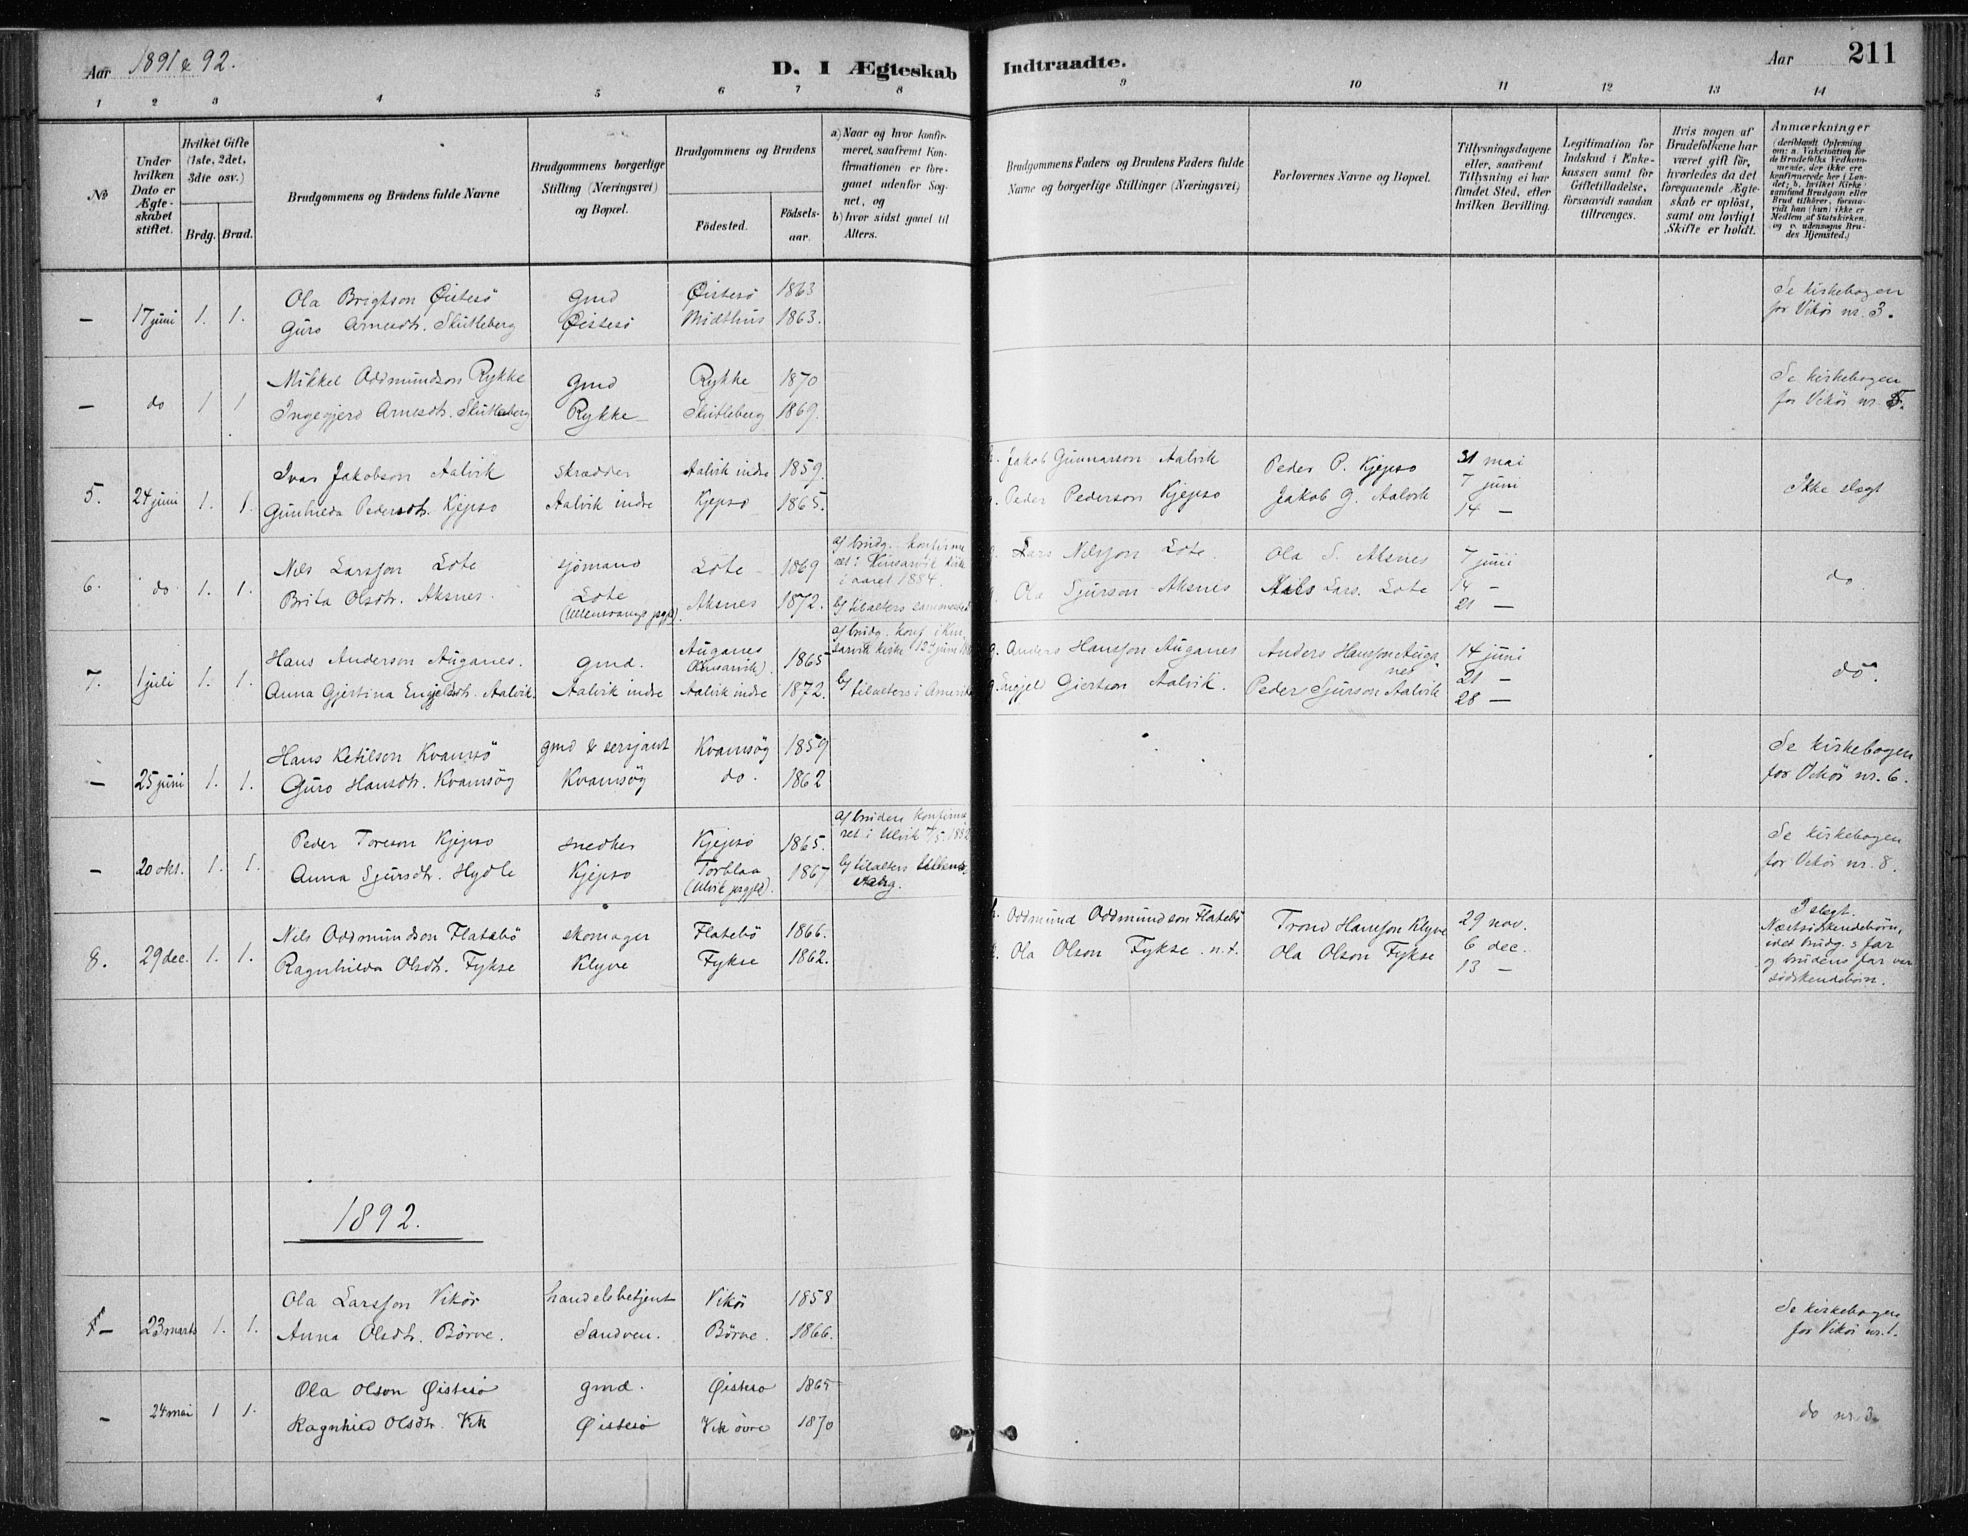 Aar 1891 & 92.
D. I Ægteskab Indtraadte.
Aar 211
1 2 3 4 5 6 7 8 9 10 11 12 13 14
No
Under hvilken Dato er Ægteskabet stiftet.
Hvilket Gifte (1ste, 2det, 3die osv.)
Brdg. Brud.
Brudgommens og Brudens fulde Navne
Brudgommens borgerlige Stilling (Næringsvei) og Bopæl.
Brudgommens og Brudens
Fødested. Fødselsaar.
a) Naar og hvor konfirmeret, saafremt Konfirmationen er foregaaet udenfor Sognet, og
b) hvor sidst gaaet til Alters.
Brudgommens Faders og Brudens Faders fulde Navne og borgerlige Stillinger (Næringsvei)
Forlovernes Navne og Bopæl.
Tillysningsdagene eller, saafremt Tillysning ei har fundet Sted, efter hvilken Bevilling.
Legitimation for Indskud i Enkekassen samt for Giftetilladelse, forsaavidt saadan tiltrænges.
Hvis nogen af Brudefolkene har været gift før, hvorledes da det foregaaende Ægteskab er opløst, samt om lovligt Skifte er holdt.
Anmærkninger (deriblandt Oplysning om: a. Vakcination for de Brudefolks Vedkommende, der ikke ere konfirmerede her i Landet; b. hvilket Kirkesamfund Brudgom eller Brud tilhører, forsaavidt han (hun) ikke er Medlem af Statskirken, og c. udensogns Brudes Hjemsted.)
Ola Brigtson Øistesö gmd Øistesö 1863 Se kirkebogen
— 17 juni 1. 1. Guro Arnesdtr. Skutleberg Øistesö Midthus 1863. for Vikör nr. 3.
Mikkel Oddmundson Rykke gmd Rykke 1870 Se kirkebogen
— do 1 1 Ingegjerd Arnesdtr. Skutleberg Rykke Skutleberg 1869. for Vikör nr. 5.
Ivar Jakobson Aalvik skrædder Aalvik indre 1859. Jakob Gunnarson Aalvik Peder P. Kjepso 31 mai
5. 24 juni 1. 1. Gunhilda Pedersdtr. Kjepso Aalvik indre Kjepso 1865. Peder Pederson Kjepso Jakob G. Aalvik 7 juni Ikke slegt
14 —
Nils Larsson Lote sjömand Lote 1869 a) brudg. konfirmeret i Kinsarvik kirke i aaret 1884. Lars Nilsson Lote. Ola S. Aksnes 7 juni
6. do 1. 1. Brita Olsdtr. Aksnes. Lote (Ullensvangs prgjd). Aksnes 1872. b) tilalters sammesteds Ola Sjurson Aksnes Nils Lars. Lote 14 — do
21 —
Hans Anderson Auganes. gmd. Auganes (Kinsarvik). 1865 a) brudg. konf. i Kinsarvik kirke Anders Hansson Auganes Anders Hansson Auganes 14 juni
7. 1 juli 1. 1. Anna Gjertina Engjelsdtr. Aalvik. Aalvik indre Aalvik indre 1872. b) tilalters i Amerika Engjel Giertson Aalvik. Peder Sjurson Aalvik 21 — do.
28 —
Hans Ketilson Kvamsö gmd & sersjant Kvamsög 1859 Se kirkebogen
— 25 juni 1. 1. Guro Hansdtr. Kvamsög Kvamsög do. 1862 for Vikör nr. 6.
Peder Toreson Kjepso snedker Kjepso 1865. a) bruden konfirmeret i Ulvik Se kirkebogen
— 20 okt. 1. 1. Anna Sjursdtr. Hydle Kjepso Torblaa (Ulvik prgjd). 1867 b) tilalters for Vikör nr. 8.
Nils Oddmundson Flatebö skomager Flatebö 1866. Oddmund Oddmundson Flatebö Trond Hansson Klyve 29 nov. I slegt.
8. 29 dec. 1. 1. Ragnhilda Olsdtr. Fykse Klyve Fykse 1862. Ola Olson Fykse. n.t. Ola Olson Fykse 6 dec. Næstsödskendebörn,
13 — idet brudg.s far
og brudens far var
södskendebörn.
1892.
Ola Larsson Vikör handelsbetjent Vikör 1858 Se kirkebogen
— 23 marts 1. 1. Anna Olsdtr. Börve. Sandven. Börve. 1866. for Vikör nr. 1.
Ola Olson Øistesö gmd. Øistesö 1865
— 24 mai 1 1. Ragnhild Olsdtr. Vik Øistesö Vik övre 1870 do nr. 3